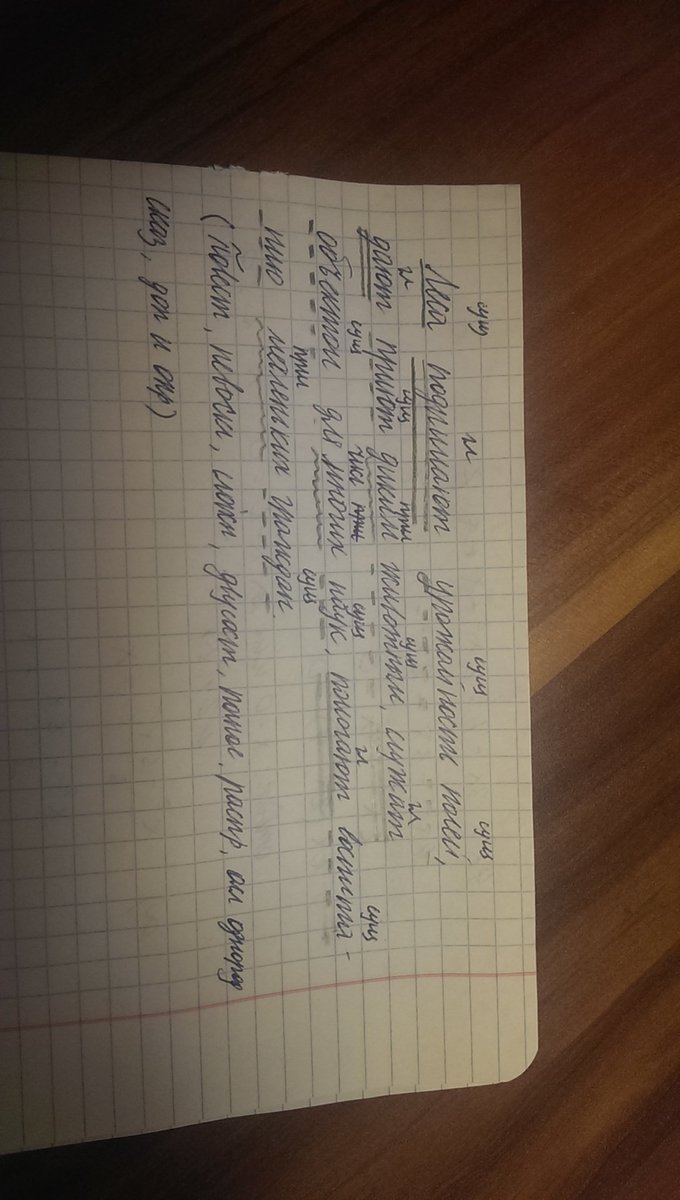 сущ г сущ сущ
Леса поднимают урожайность полей,
г сущ прил сущ г
дают приют диким животным, служат
сущ числ прил сущ г сущ
объектом для многих наук, помогают воспита-
прил сущ
нию маленьких граждан.
(Повест, невоскл, сложн, двусост, полное, распр, одно
сказ, доп и опр)